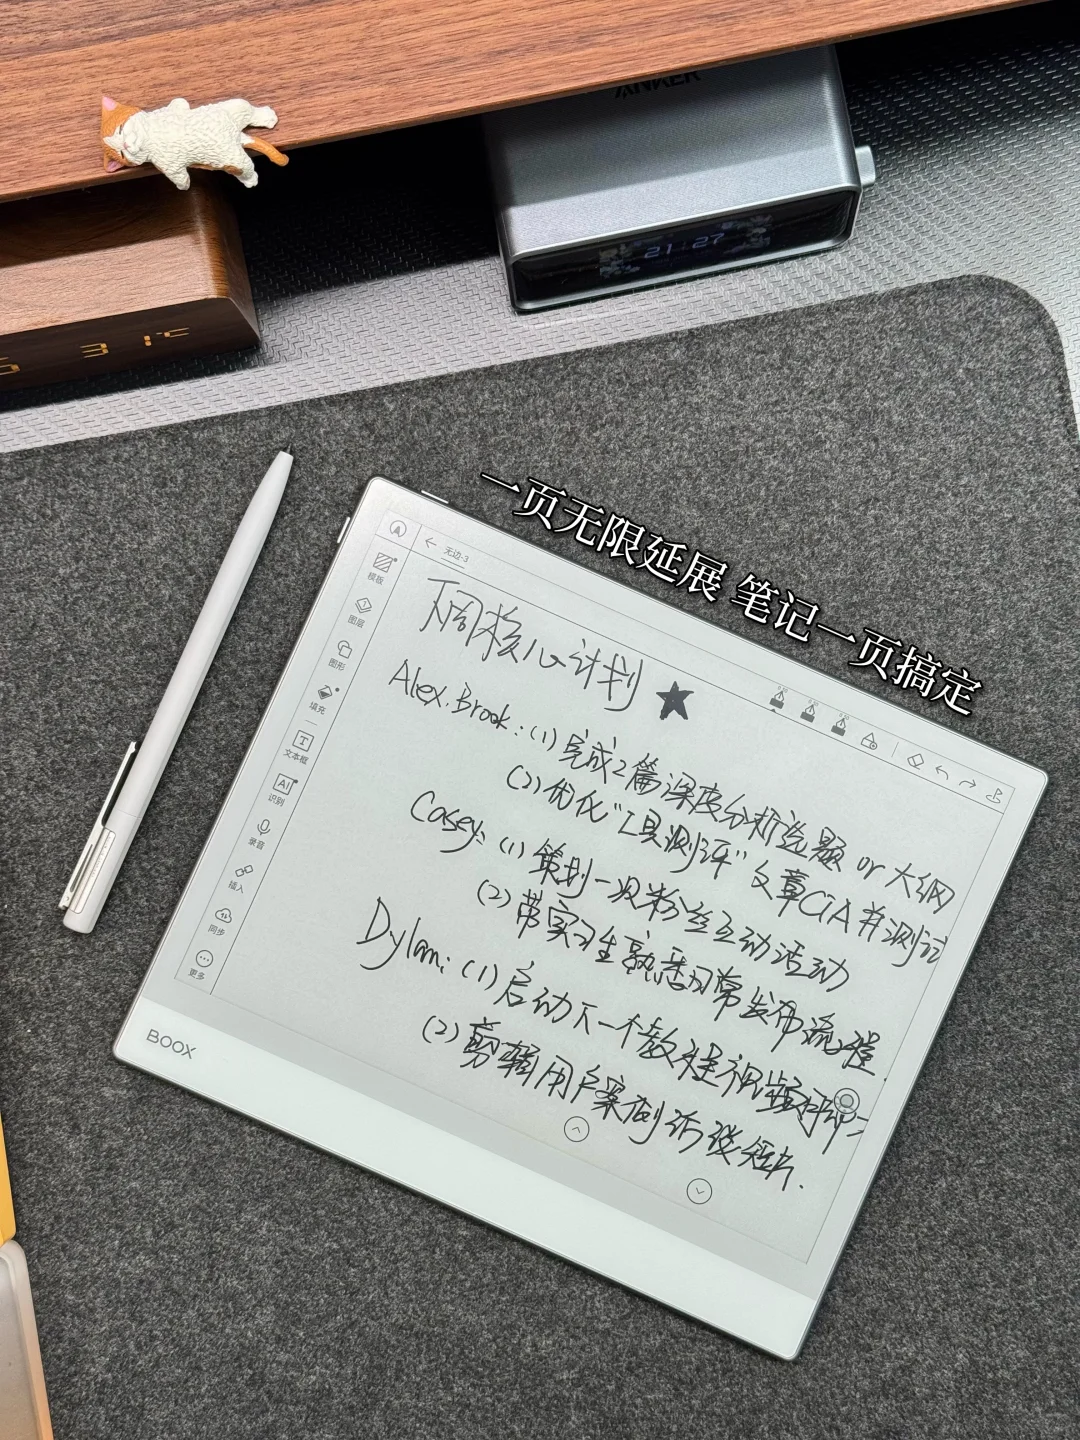 ANKER
21:27
31℃
一页无限延展 笔记一页搞定
无边-3
模板
图层
图形
填充
文本框
AI
识别
录音
插入
同步
更多
下周核心计划 ★
Alex.Brook:(1)完成2篇深度分析选题 or 大纲
(2)优化"工具测评"文章CTA并测试
Casey:(1)策划一次粉丝互动活动
(2)带实习生熟悉日常发布流程.
Dylan:(1)启动下一个教程视频
(2)剪辑用户案例访谈短片.
BOOX